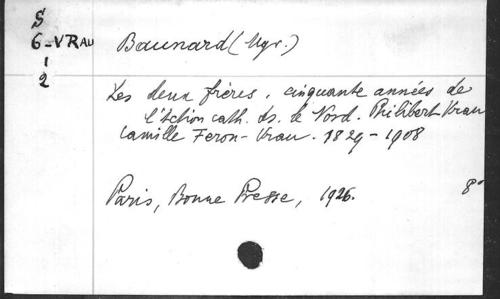 S
6-VRAU
1
2
Baunard (Mgr.)
Les deux frères. cinquante années de
l'Action cath. ds. le Nord. Philibert Vrau
Camille Feron-Vrau. 1829-1908
Paris, Bonne Presse, 1926. 8°